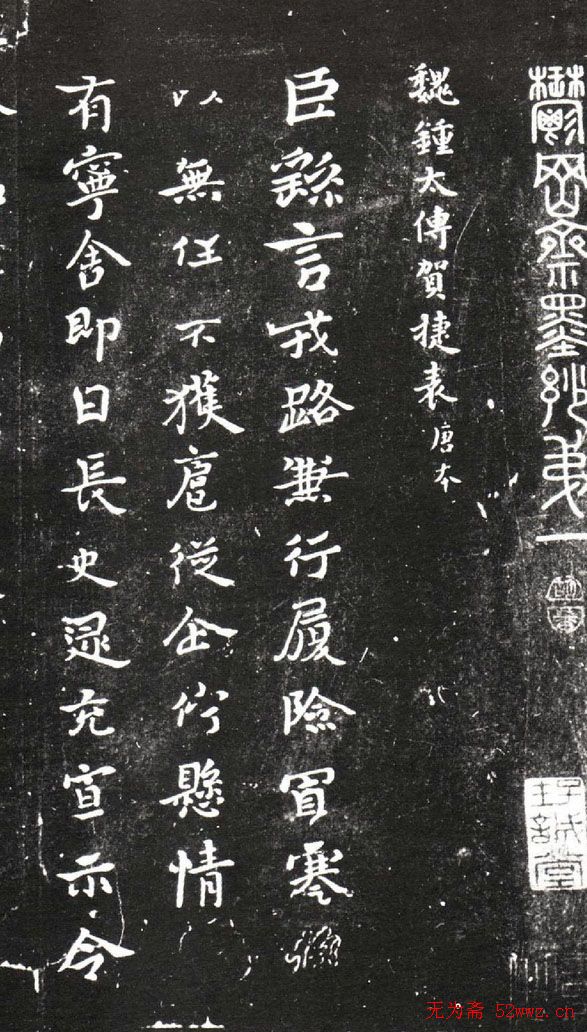 鬱岡齋墨妙第一
魏鍾太傅賀捷表唐本
臣繇言戎路兼行履險冒寒臣
以無任不獲扈從企佇懸情
有寧舍即日長史逯充宣示令
无为斋 52wwg.cn